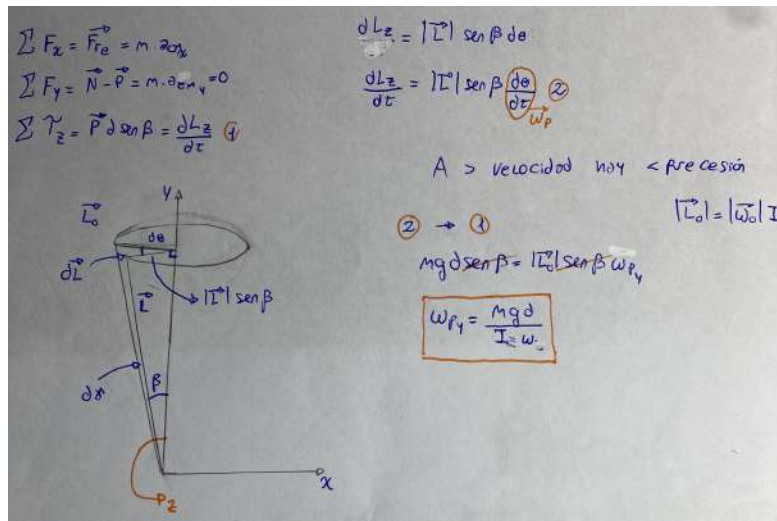 ∑ Fx = Fre = m·acmx
∑ Fy = N - P = m·acmy = 0
∑ τz = P d sen β = dLz/dt ①
dLz = |L| sen β dθ
dLz/dt = |L| sen β dθ/dt ②
ωp
A > velocidad hay < precesión
|L₀| = |ω₀| I
② → ①
mgd sen β = |L₀| sen β ωPy
ωPy = mgd / I ω
y
L₀
dθ
dL
L
|L| sen β
β
x
z